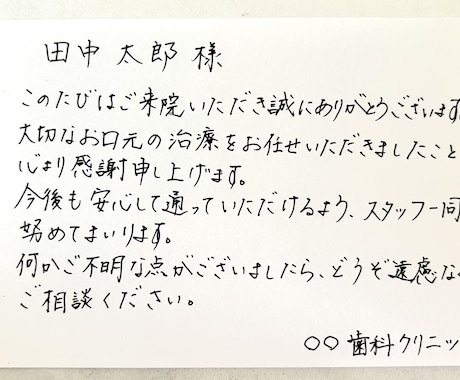 田中太郎様
このたびはご来院いただき誠にありがとうございます。
大切なお口元の治療をお任せいただきましたこと
心より感謝申し上げます。
今後も安心して通っていただけるよう、スタッフ一同
努めてまいります。
何かご不明な点がございましたら、どうぞ遠慮な
ご相談ください。
○○歯科クリニッ